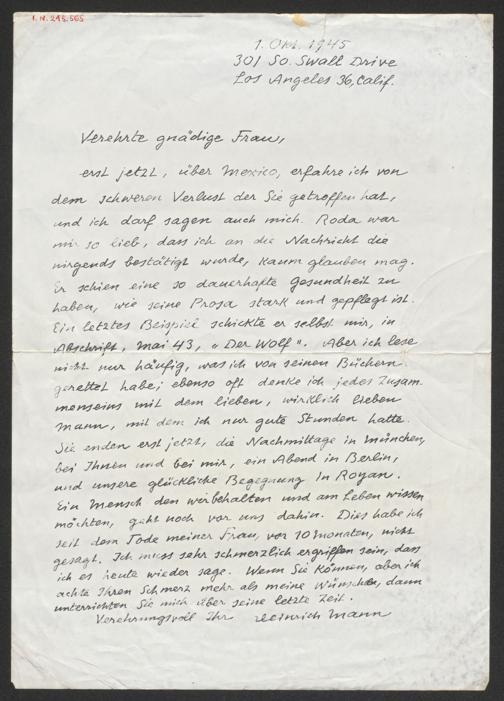 I.N. 245.565
1. Okt. 1945
301 So. Swall Drive
Los Angeles 36, Calif.
Verehrte gnädige Frau,
erst jetzt, über Mexico, erfahre ich von
dem schweren Verlust der Sie getroffen hat,
und ich darf sagen auch mich. Roda war
mir so lieb, dass ich an die Nachricht die
nirgends bestätigt wurde, kaum glauben mag.
Er schien eine so dauerhafte Gesundheit zu
haben, wie seine Prosa stark und gepflegt ist.
Ein letztes Beispiel schickte er selbst mir, in
Abschrift, Mai 43, „Der Wolf". Aber ich lese
nicht nur häufig, was ich von seinen Büchern
gerettet habe; ebenso oft denke ich jedes Zusam-
menseins mit dem lieben, wirklich lieben
Mann, mit dem ich nur gute Stunden hatte.
Sie enden erst jetzt, die Nachmittage in München,
bei Ihnen und bei mir, ein Abend in Berlin,
und unsere glückliche Begegnung in Royan.
Ein Mensch den wir behalten und am Leben wissen
möchten, geht noch vor uns dahin. Dies habe ich
seit dem Tode meiner Frau, vor 10 Monaten, nicht
gesagt. Ich muss sehr schmerzlich ergriffen sein, dass
ich es heute wieder sage. Wenn Sie können, aber ich
achte Ihren Schmerz mehr als meine Wünsche, dann
unterrichten Sie mich über seine letzte Zeit.
Verehrungsvoll Ihr Heinrich Mann